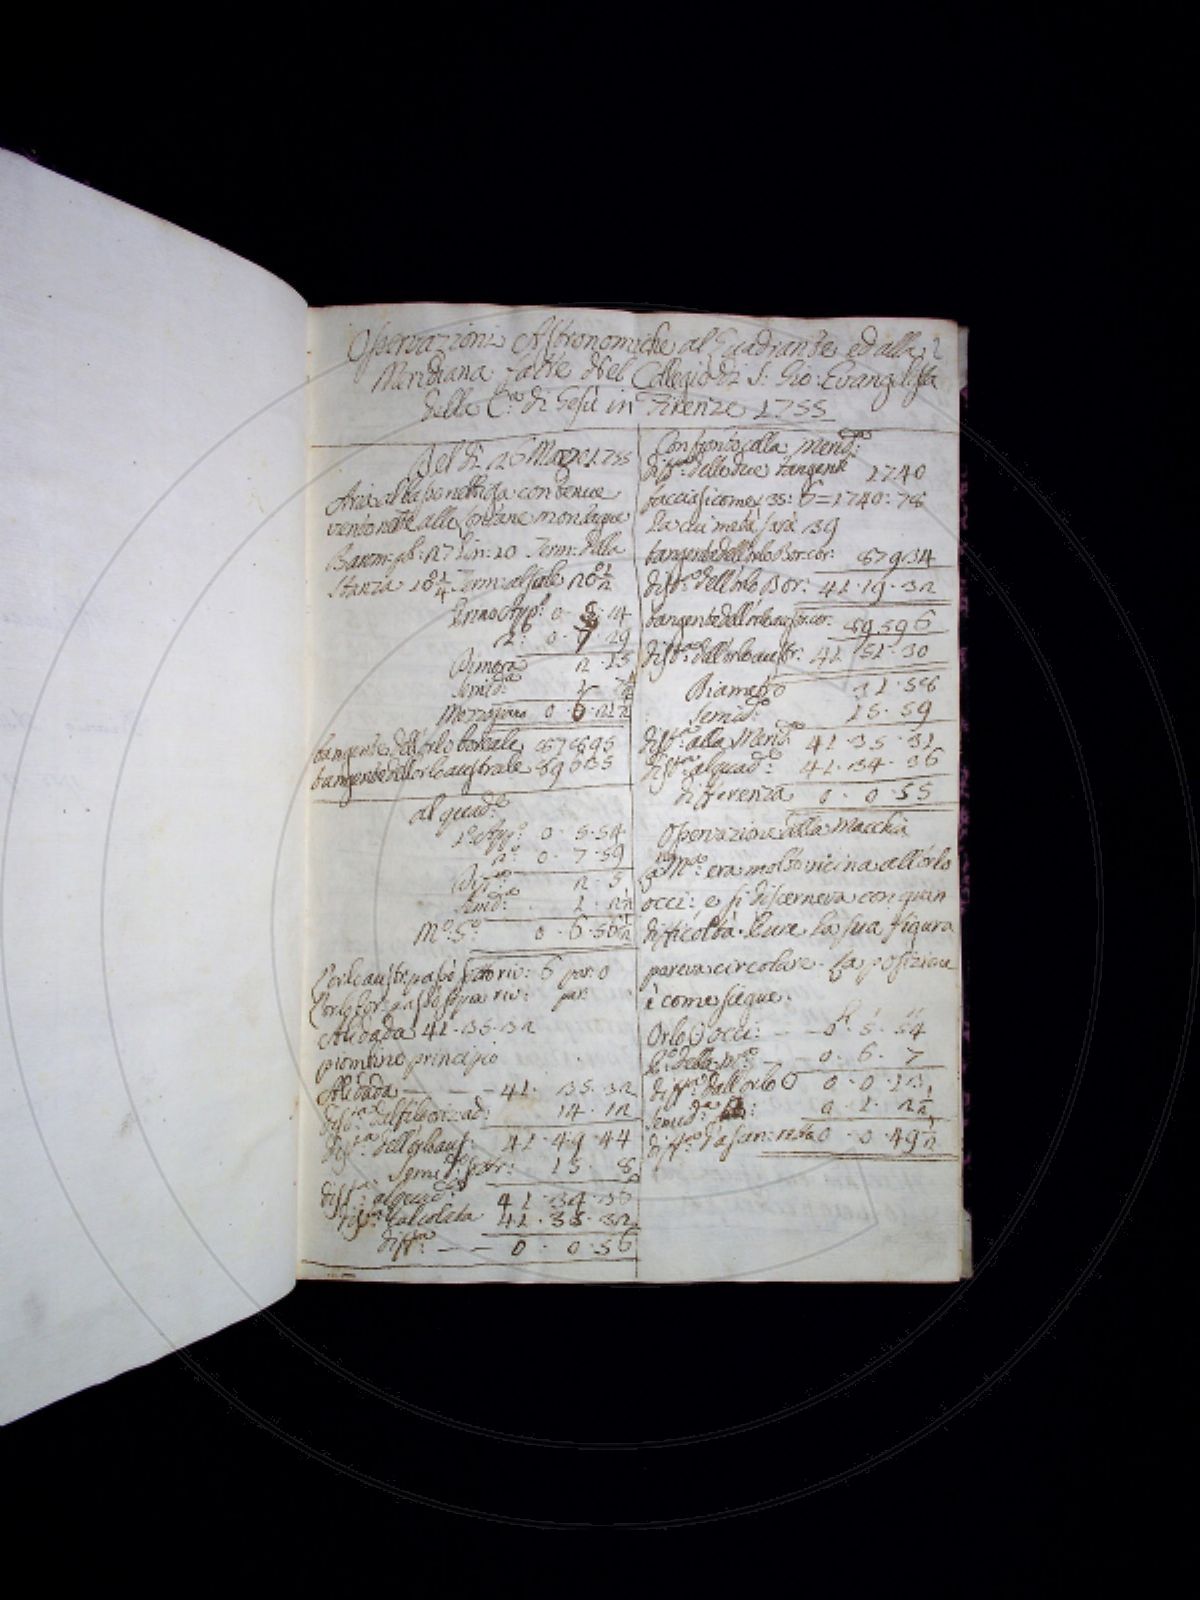 Osservazioni Astronomiche al Quadrante ed alla
Meridiana fatte Nel Collegio di S: Gio: Evangelista
della C.a di Gesù in Firenze 1755
Del dì 26 Marzo 1755
Aria con tenue
vento nette alle montagne
Barom: 27 lin: 10 Term: della
Stanza 10 1/4 Term: al sole
Primo App.o 0 · 14
2.o 0 · 7 · 29
Dimora 2 · 15
Semid.a
Mezzogiorno 0 · 6 ·
tangente dell'orlo boreale 878695
tangente dell'orlo australe
al quad.e
1.o App.o 0 · 5 · 54
2.o 0 · 7 · 59
2 · 5
Semid.a 1 · 2 1/2
M.o G.o 0 · 6 · 56 1/2
L'orlo austr: passò sotto riv: 6 par: 0
L'orlo bor: passò sopra riv: par:
Alidada 41 · 35 · 32
piombino principio
Alidada — — — 41 · 35 · 32
14 · 12
dist.a dell'orlo aust: 41 · 49 · 44
Semid.o 15 · 8
dist.a al quad.e 41 · 34 · 36
dist.a Calcolata 41 · 35 · 32
diff.a — — 0 · 0 · 56
Confronto alla Merid.a
diff.a delle due tangenti 1740
facciasi come 35: 6 = 1740: 78
la cui metà sarà 39
tangente dell'orlo Bor: cor: 87934
dist.a dell'orlo Bor: 41 · 19 · 32
tangente dell'orlo austr: cor: 89596
dist.a dell'orlo austr: 41 · 51 · 30
Diametro 31 · 58
Semid.o 15 · 59
dist.a alla Merid.a 41 · 35 · 31
dist.a al quad.e 41 · 34 · 36
differenza 0 · 0 · 55
Osservazione della Macchia
La M.a era molto vicina all'orlo
occi: e si discerneva con quan
difficoltà. Pure la sua figura
pareva circolare. La posizione
è come siegue.
Orlo ☉ occi: — — 0 · 5 · 54
della M.a — — 0 · 6 · 7
diff.a dall'orlo ☉ 0 · 0 · 13
Semid.a 0 · 1 · 2 1/2
diff.a d'ascen: retta 0 · 0 · 49 1/2